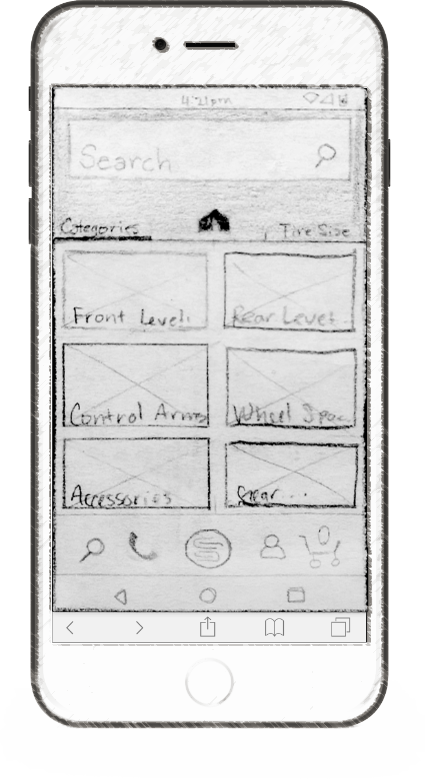 4:21pm
Search
Categories
Tire Size
Front Leveli
Rear Level
Control Arms
Wheel Spac
Accessories
Gear...
0